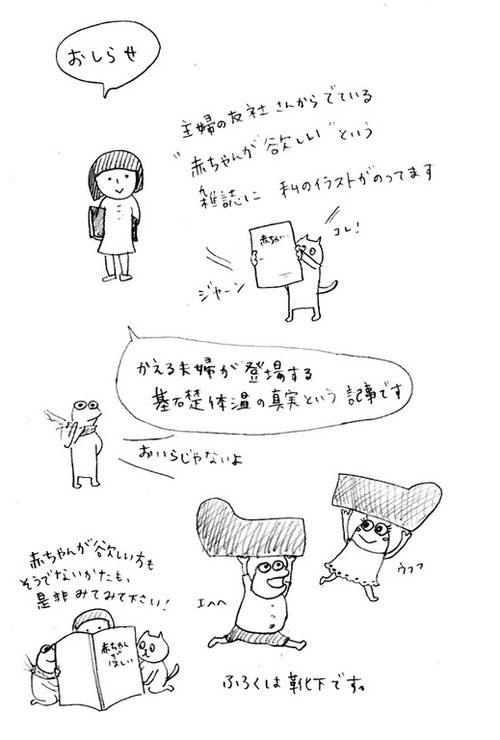 おしらせ
主婦の友社さんからでている
"赤ちゃんが欲しい"という
雑誌に 私のイラストがのってます
赤ちゃんが
コレ!
ジャーン
かえる夫婦が登場する
基礎体温の真実という記事です
おいらじゃないよ
ウフフ
エヘヘ
赤ちゃんが欲しい方も
そうでないかたも、
是非みてみて下さい!
赤ちゃん
が
ほしい
ふろくは靴下です。